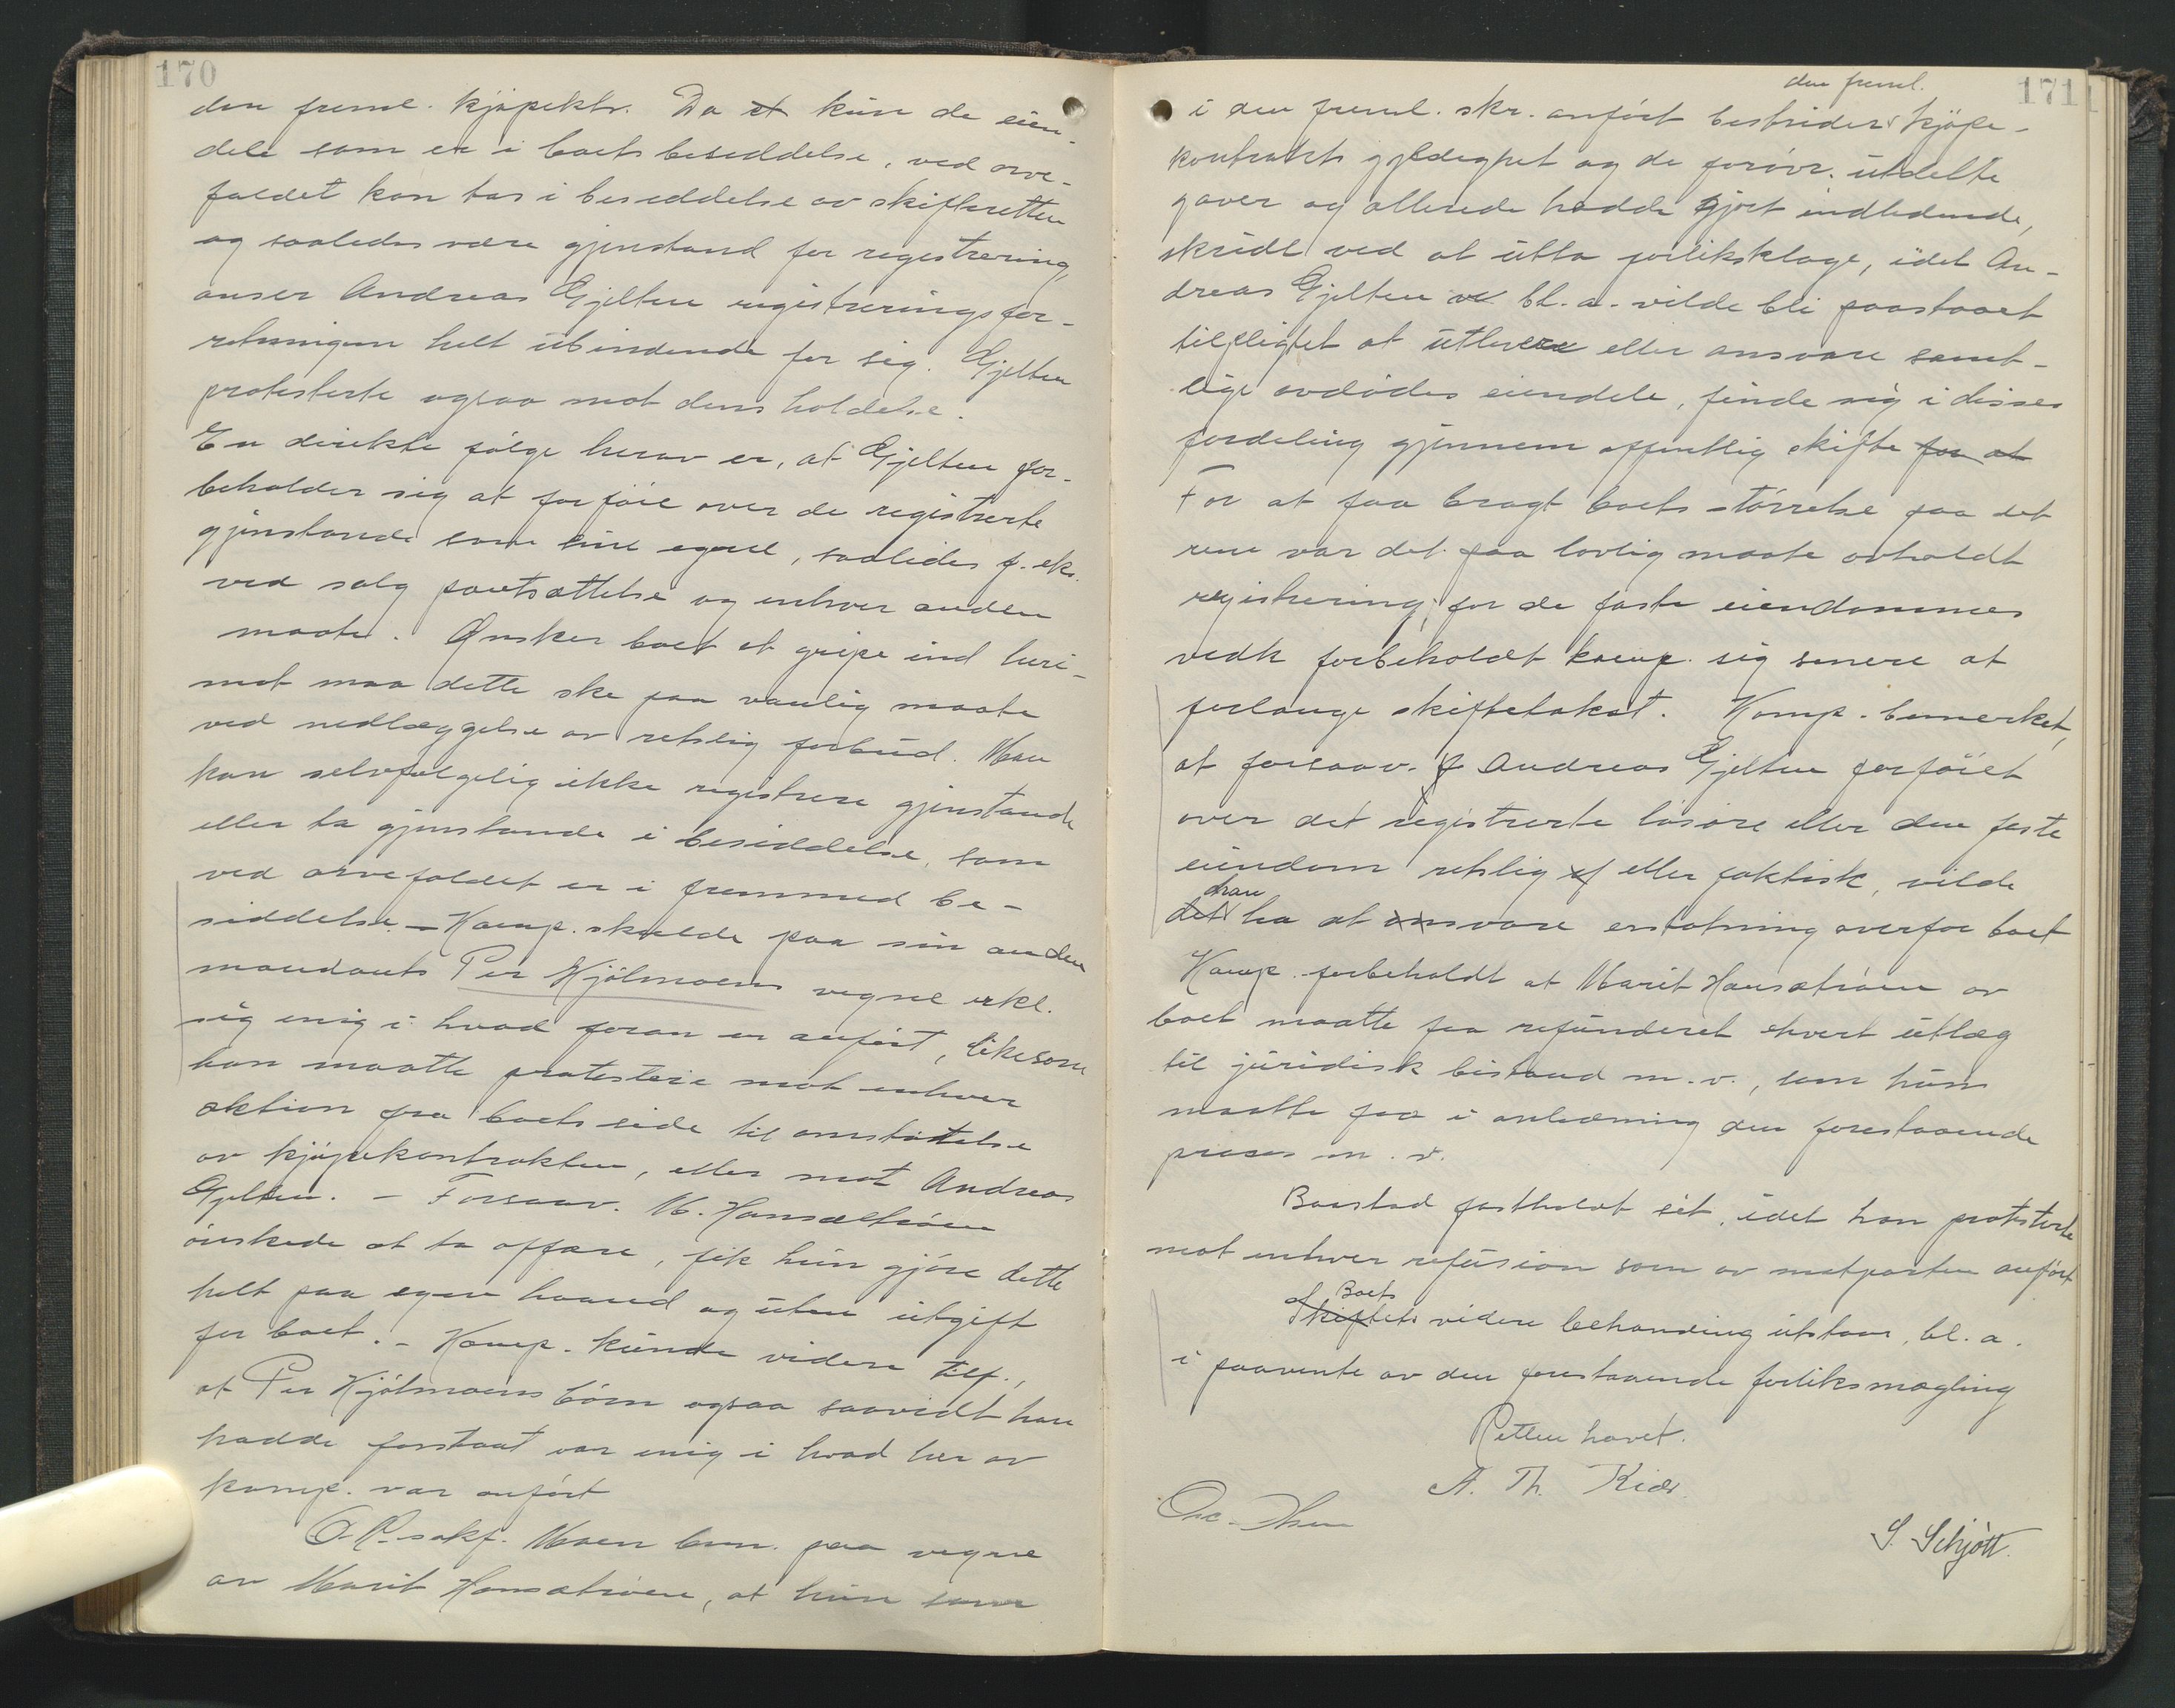 170
den freml. kjøpektr. Da et kun de eien-
dele som er i boets besiddelse, ved arve-
faldet kan tas i besiddelse av skifteretten
og saaledes være gjenstand for registrering,
anser Andreas Gjelten registreringsfor-
retningen helt ubindende for sig. Gjelten
protesterte ogsaa mot dens holdelse.
En direkte følge herav er, at Gjelten for-
beholder sig at forføie over de registrerte
gjenstande som sine egne, saaledes f. eks.
ved salg pantsættelse og enhver anden
maate. Ønsker boet at gripe ind heri-
mot maa dette ske paa vanlig maate
ved nedlæggelse av retslig forbud. Man
kan selvfølgelig ikke registrere gjenstande
eller ta gjenstande i besiddelse, som
ved arvefaldet er i fremmed be-
siddelse – Komp. skulde paa sin anden
mandants Per Kjølmoens vegne erkl.
sig enig i hvad foran er anført, likesom
han maatte protestere mot enhver
aktion fra boets side til omstøtelse
av kjøpekontrakten, eller mot Andreas
Gjelten. – Forsaav. M. Hansætrøen
ønskede at ta affære, fik hun gjøre dette
helt paa egen haand og uten utgift
for boet. – Komp. kunde videre tilf.,
at Per Kjølmoens børn ogsaa saavidt han
hadde forstaat var enig i hvad her av
komp. var anført
O.R.sakf. Moen bem. paa vegne
av Marit Hansætrøen, at hun som
171
den freml.
i den freml. skr. anført bestrider kjøpe-
kontrakts gyldighet og de forøvr. utdelte
gaver og allerede hadde gjort indledende,
skridt ved at utta forliksklage, idet An-
dreas Gjelten ve bl. a. vilde bli paastaaet
tilpligtet at utlevere eller ansvare samt-
lige avdødes eiendele, finde sig i disses
fordeling gjennem offentlig skifte for at
For at faa bragt boets størrelse paa det
rene var det paa lovlig maate avholdt
registrering; for de faste eiendommes
vedk forbeholdt komp. sig senere at
forlange skiftetakst. Komp. bemerket,
at forsaav. f Andreas Gjelten forføiet
over det registrerte løsøre eller den faste
eiendom retslig ef eller faktisk, vilde
han
det ha at ansvare erstatning overfor boet
Komp. forbeholdt at Marit Hansætrøen av
boet maatte faa refunderet ethvert utlæg
til juridisk bistand m.v., som hun
maatte faa i anledning den forestaaende
proses m. v.
Baustad fastholdt sit, idet han protesterte
mot enhver refusion som av motparten anført
Boets
Skiftets videre behandling utstaar, bl. a.
i paavente av den forestaaende forliksmægling
Retten hævet.
A. Th. Kiær
S. Schjøtt.